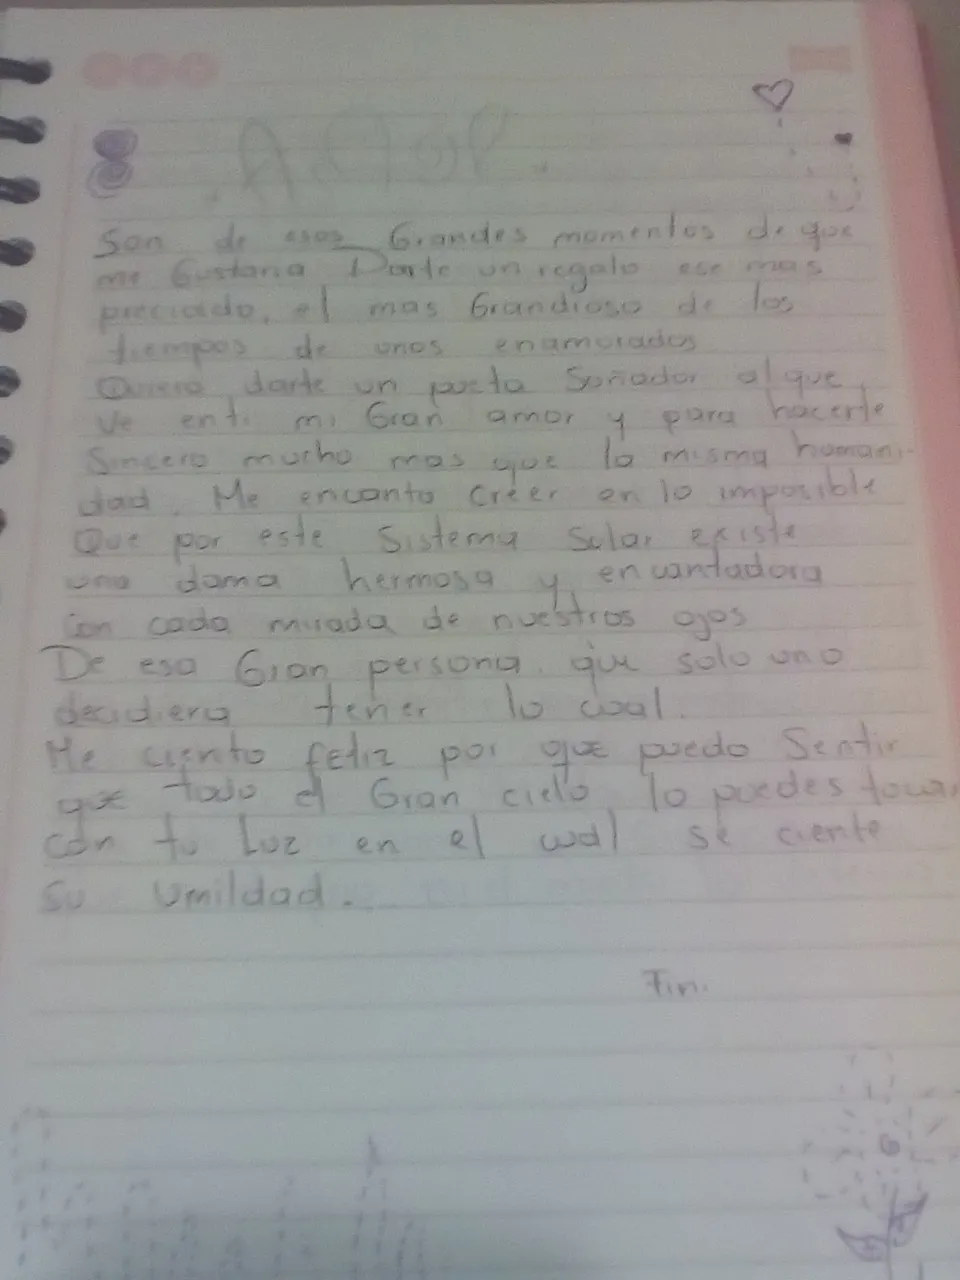 8 Amor.
Son de esos Grandes momentos de que
me Gustaria Darte un regalo ese mas
preciado, el mas Grandioso de los
tiempos de unos enamorados
Quiero darte un poeta Soñador al que
ve en ti mi Gran amor y para hacerte
Sincero mucho mas que la misma humani-
dad. Me encanta creer en lo imposible
Que por este Sistema Solar existe
una dama hermosa y encantadora
Con cada mirada de nuestros ojos
De esa Gran persona que solo uno
decidiera tener lo cual.
Me ciento feliz por que puedo Sentir
que todo el Gran cielo lo puedes tocar
con tu Luz en el cual se ciente
su Umildad.
Fin.